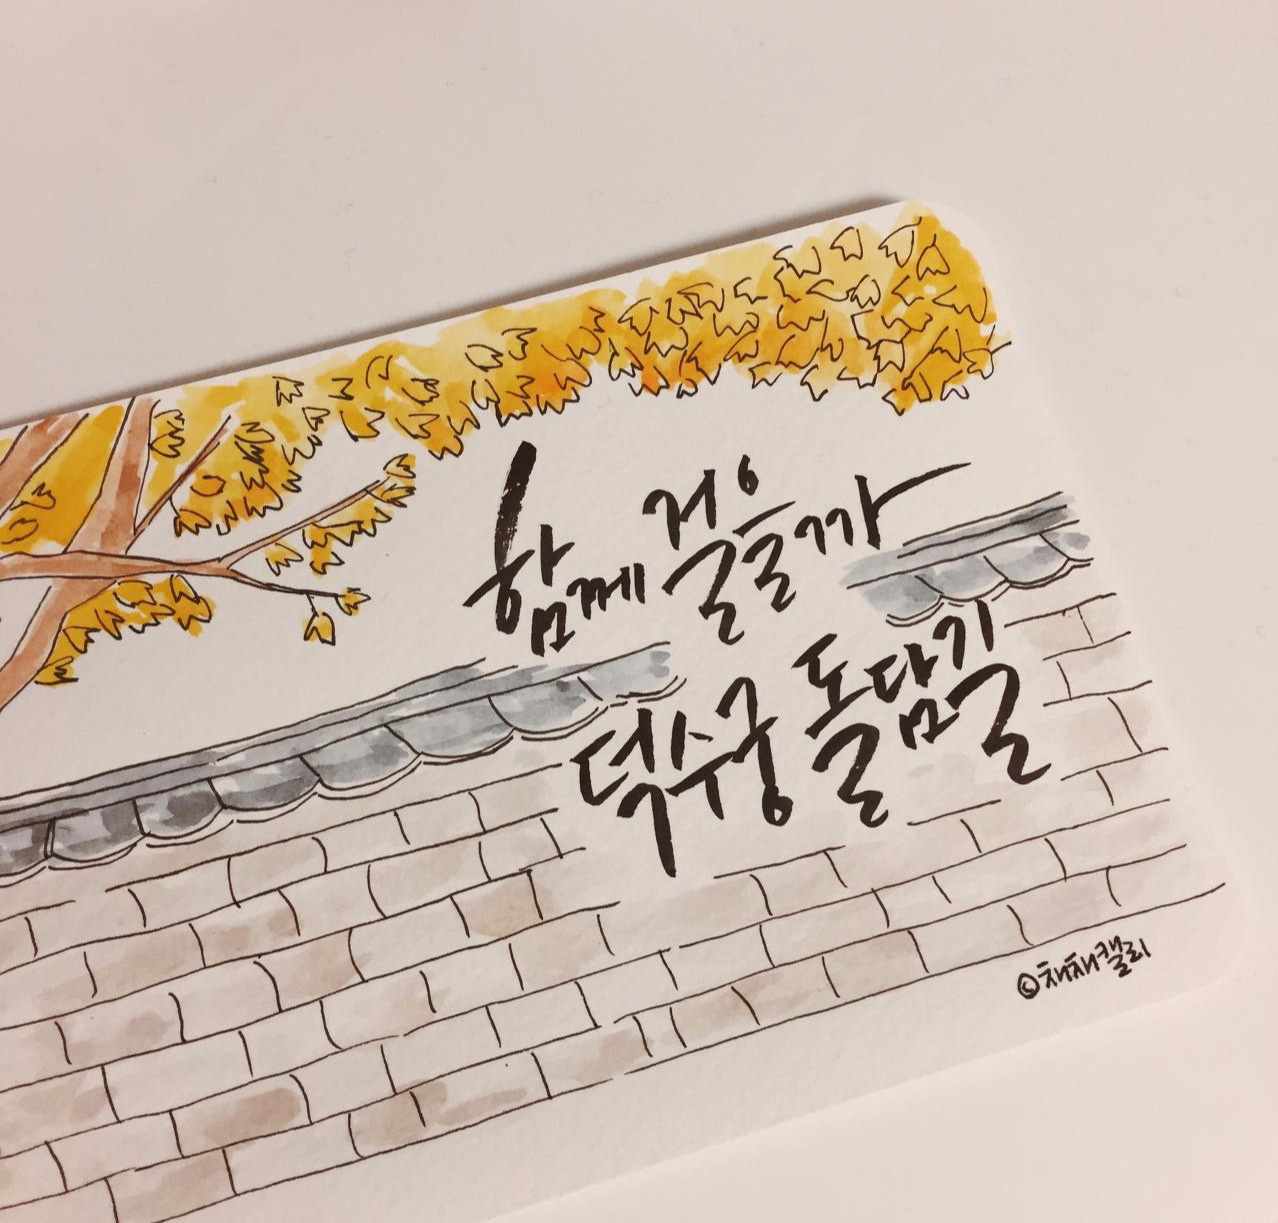 함께 걸을까
덕수궁 돌담길
©채채캘리